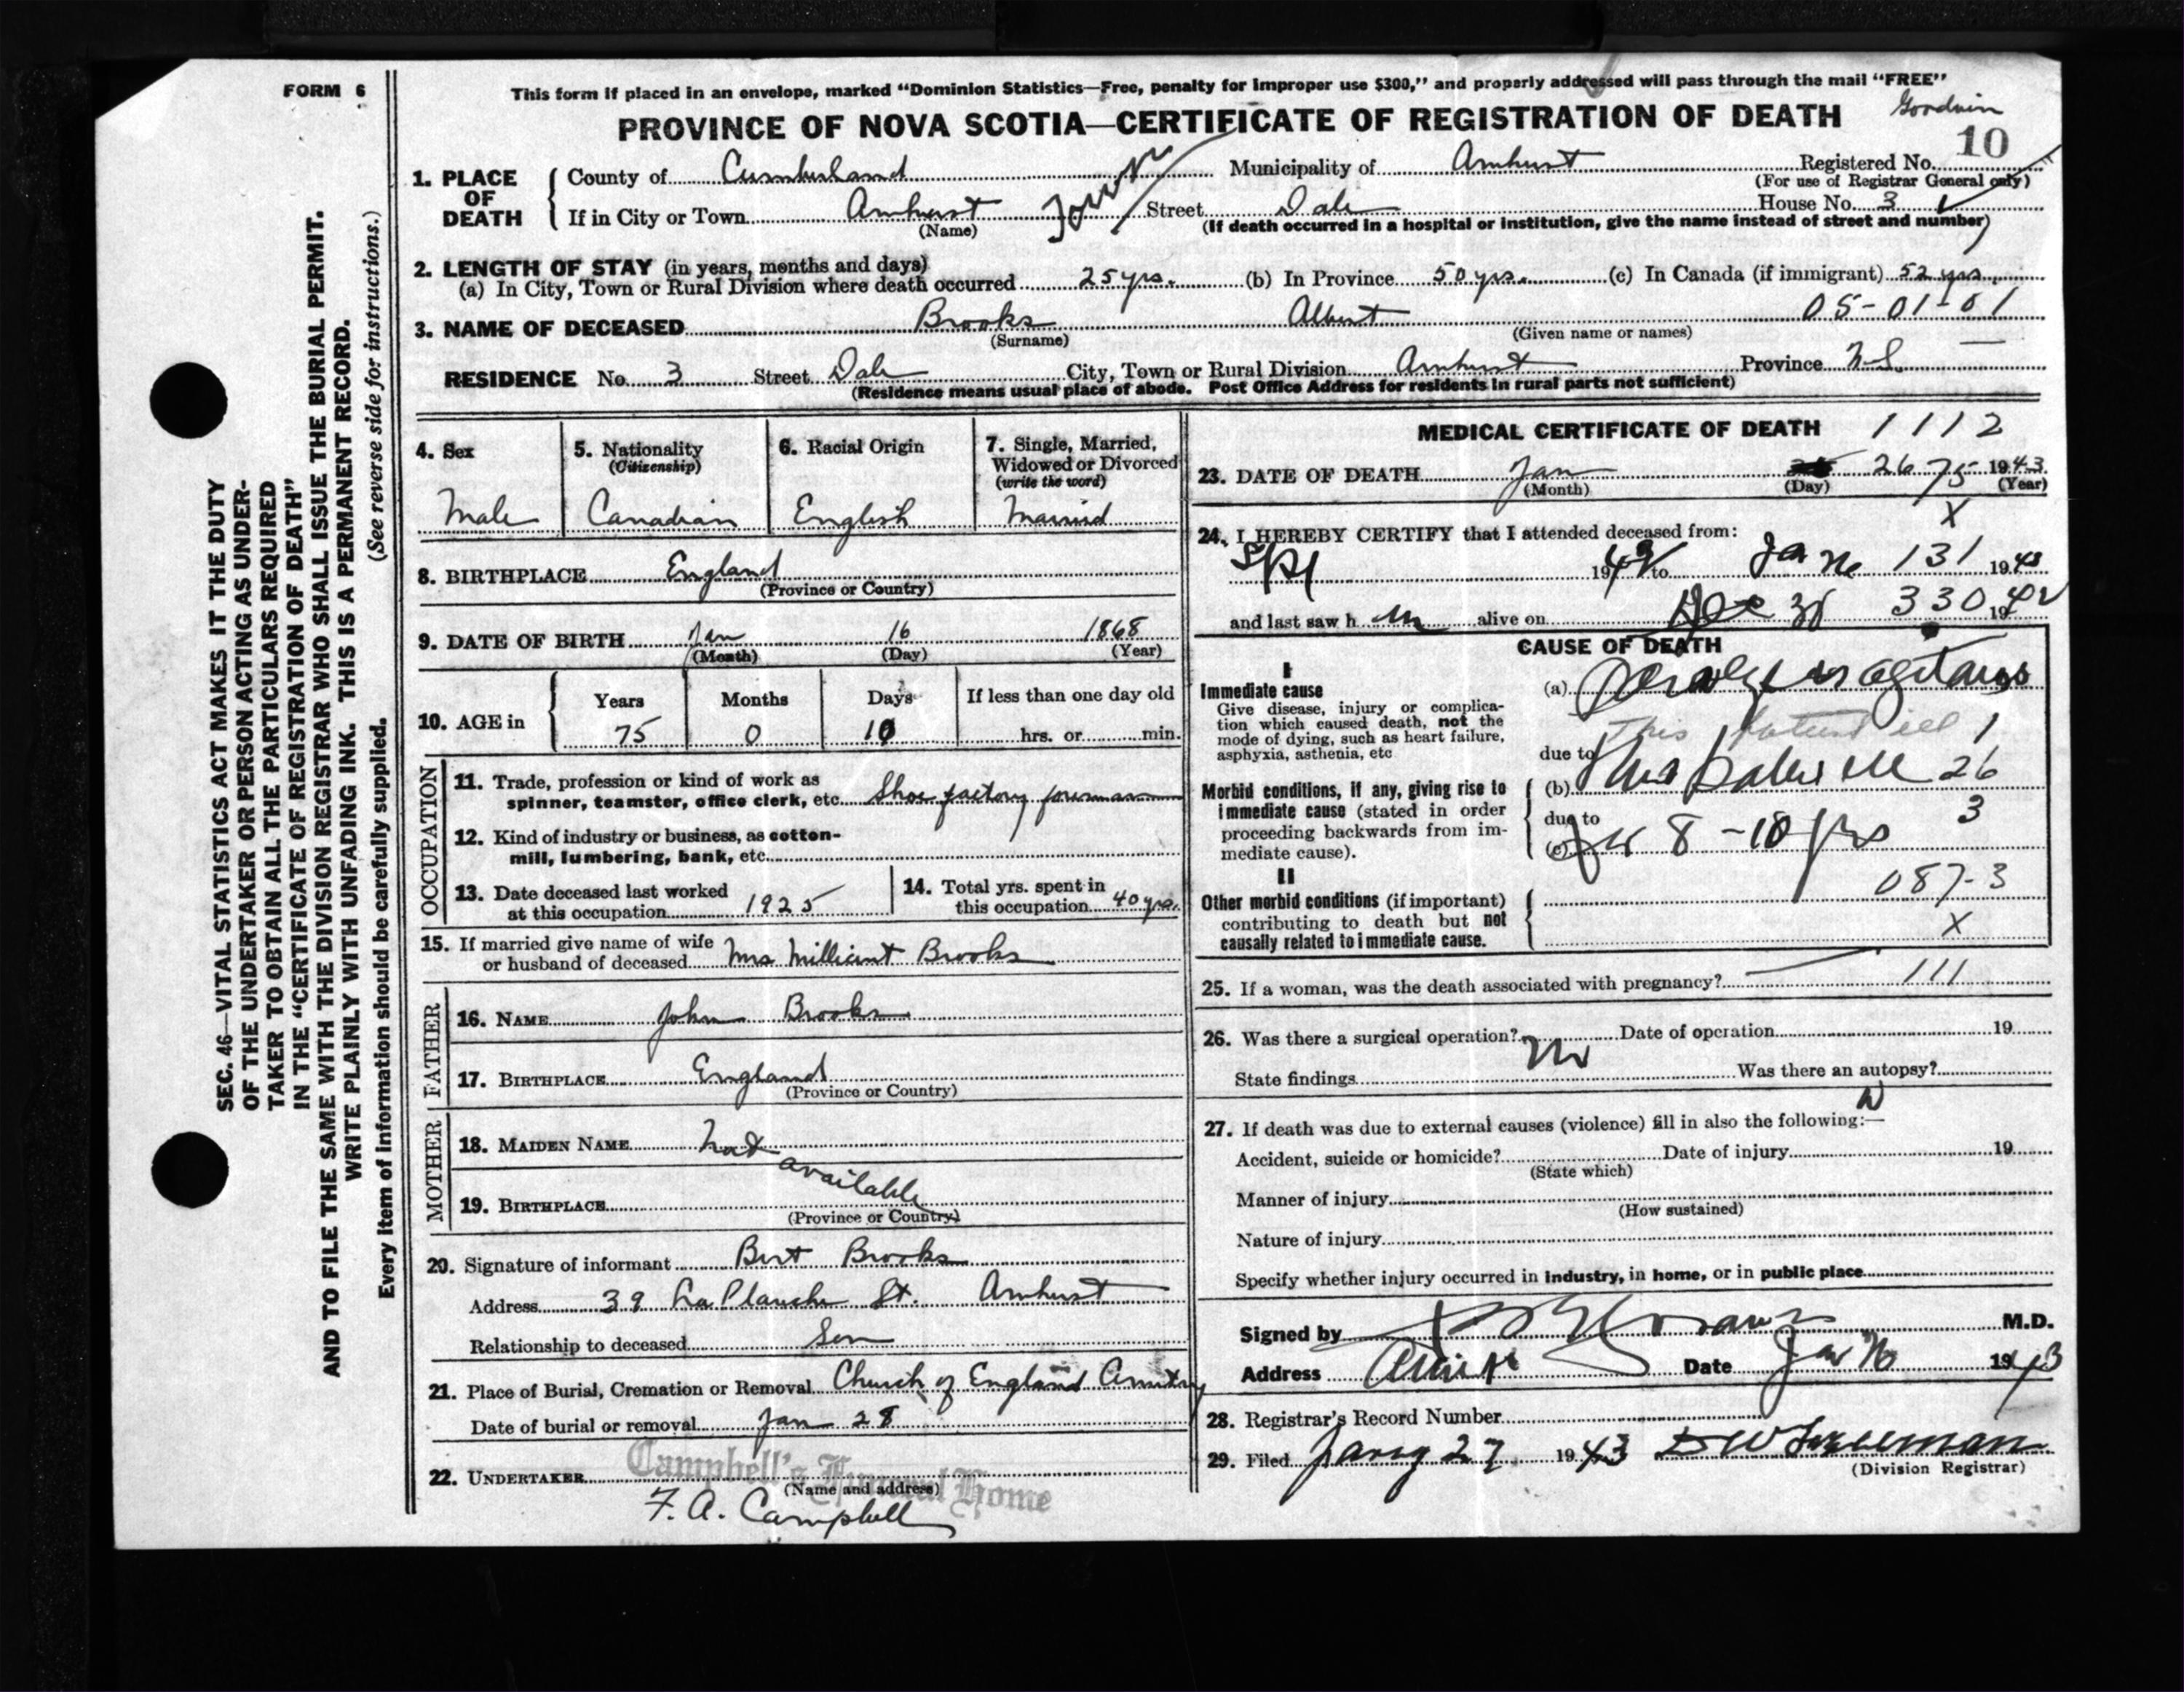 FORM 6
This form if placed in an envelope, marked “Dominion Statistics—Free, penalty for improper use $300,” and properly addressed will pass through the mail “FREE”
PROVINCE OF NOVA SCOTIA—CERTIFICATE OF REGISTRATION OF DEATH
Goodwin
10
1. PLACE OF DEATH
County of Cumberland Municipality of Amherst Registered No.
(For use of Registrar General only)
If in City or Town Amherst Town Street Dale House No. 3
(Name) (If death occurred in a hospital or institution, give the name instead of street and number)
2. LENGTH OF STAY (in years, months and days)
(a) In City, Town or Rural Division where death occurred 25 yrs. (b) In Province 50 yrs. (c) In Canada (if immigrant) 52 yrs.
05-01-01
3. NAME OF DECEASED Brooks Albert
(Surname) (Given name or names)
RESIDENCE No. 3 Street Dale City, Town or Rural Division Amherst Province N.S.
(Residence means usual place of abode. Post Office Address for residents in rural parts not sufficient)
4. Sex
Male
5. Nationality
(Citizenship)
Canadian
6. Racial Origin
English
7. Single, Married,
Widowed or Divorced
(write the word)
Married
8. BIRTHPLACE England
(Province or Country)
9. DATE OF BIRTH Jan 16 1868
(Month) (Day) (Year)
10. AGE in
Years Months Days If less than one day old
75 0 10 hrs. or min.
OCCUPATION
11. Trade, profession or kind of work as
spinner, teamster, office clerk, etc. Shoe factory foreman
12. Kind of industry or business, as cotton-
mill, lumbering, bank, etc.
13. Date deceased last worked
at this occupation 1925
14. Total yrs. spent in
this occupation 40 yrs.
15. If married give name of wife
or husband of deceased Mrs Millicent Brooks
FATHER
16. NAME John Brooks
17. BIRTHPLACE England
(Province or Country)
MOTHER
18. MAIDEN NAME Not
available
19. BIRTHPLACE
(Province or Country)
20. Signature of informant Bert Brooks
Address 39 LaPlanche St. Amherst
Relationship to deceased Son
21. Place of Burial, Cremation or Removal Church of England Cemetry
Date of burial or removal Jan 28
22. UNDERTAKER Campbell's Funeral Home
(Name and address)
F. A. Campbell
MEDICAL CERTIFICATE OF DEATH 1112
23. DATE OF DEATH Jan 26 75 1943
(Month) (Day) (Year)
X
24. I HEREBY CERTIFY that I attended deceased from:
19 to Jan 131 1943
and last saw h m alive on Dec 330 1942
CAUSE OF DEATH
I
Immediate cause
Give disease, injury or complica-
tion which caused death, not the
mode of dying, such as heart failure,
asphyxia, asthenia, etc
(a) Paralysis agitans
This patient ill 1
due to
Morbid conditions, if any, giving rise to
immediate cause (stated in order
proceeding backwards from im-
mediate cause).
(b) 26
due to 3
(c) for 8-10 yrs
II
087-3
Other morbid conditions (if important)
contributing to death but not
causally related to immediate cause.
X
25. If a woman, was the death associated with pregnancy? 111
26. Was there a surgical operation? No Date of operation 19
State findings Was there an autopsy?
27. If death was due to external causes (violence) fill in also the following:—
Accident, suicide or homicide? Date of injury 19
(State which)
Manner of injury
(How sustained)
Nature of injury
Specify whether injury occurred in industry, in home, or in public place
Signed by M.D.
Address Date Jan 1943
28. Registrar's Record Number
29. Filed Jany 27 1943
(Division Registrar)
SEC. 46—VITAL STATISTICS ACT MAKES IT THE DUTY
OF THE UNDERTAKER OR PERSON ACTING AS UNDER-
TAKER TO OBTAIN ALL THE PARTICULARS REQUIRED
IN THE “CERTIFICATE OF REGISTRATION OF DEATH”
AND TO FILE THE SAME WITH THE DIVISION REGISTRAR WHO SHALL ISSUE THE BURIAL PERMIT.
WRITE PLAINLY WITH UNFADING INK. THIS IS A PERMANENT RECORD.
Every item of information should be carefully supplied. (See reverse side for instructions.)